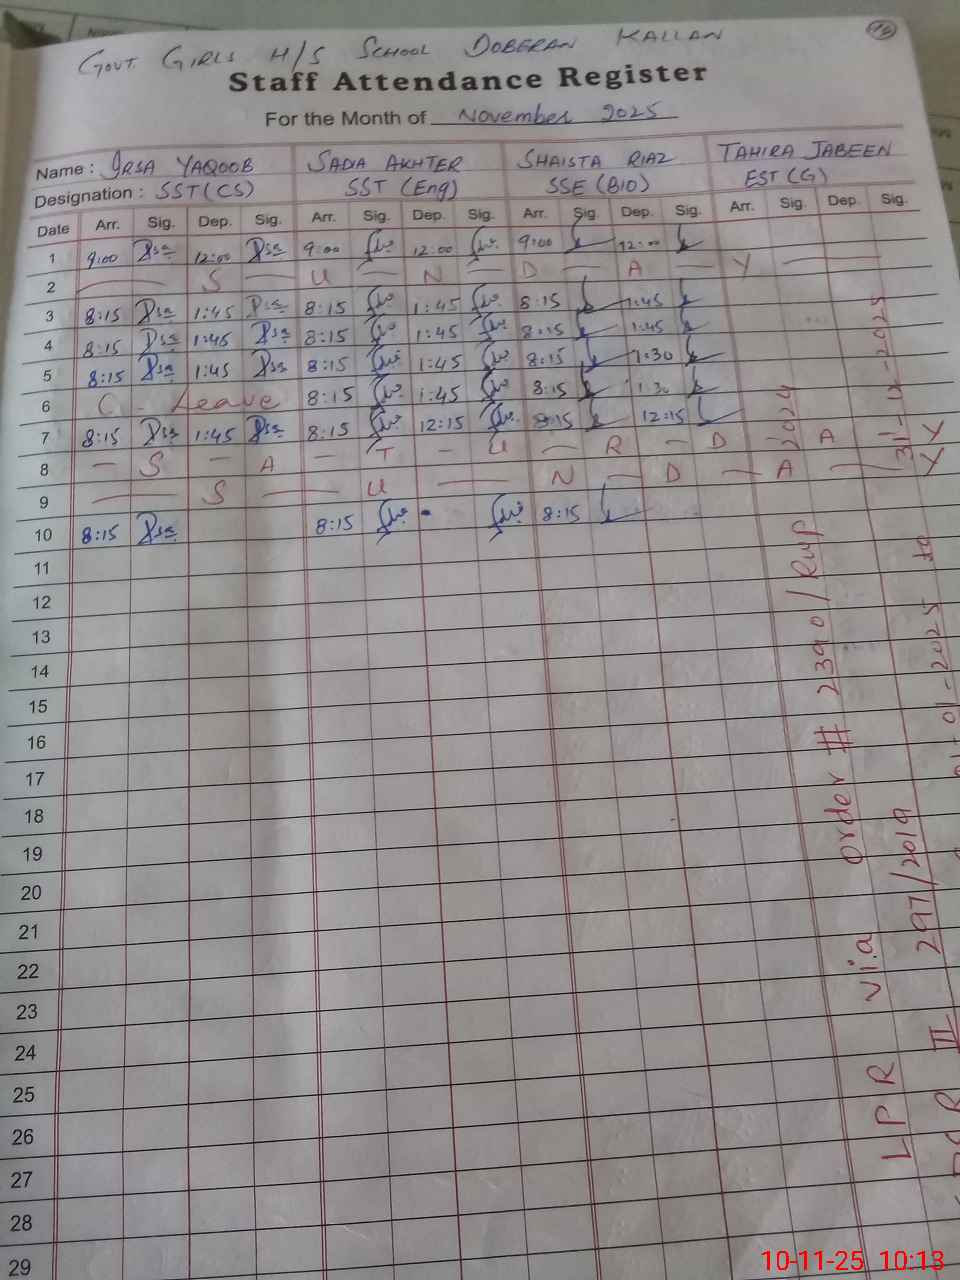 GOVT. GIRLS H/S SCHOOL DOBERAN KALLAN
Staff Attendance Register
For the Month of November 2025
Name : IRSA YAQOOB SADIA AKHTER SHAISTA RIAZ TAHIRA JABEEN
Designation : SST(CS) SST (Eng) SSE (BIO) EST (G)
Date Arr. Sig. Dep. Sig. Arr. Sig. Dep. Sig. Arr. Sig. Dep. Sig. Arr. Sig. Dep. Sig.
1 9:00 12:00 9:00 12:00 9:00 12:00
2 — S — U — N — D — A — Y —
3 8:15 1:45 8:15 1:45 8:15 1:45
4 8:15 1:45 8:15 1:45 8:15 1:45
5 8:15 1:45 8:15 1:45 8:15 1:30
6 C. Leave 8:15 1:45 8:15 1:30
7 8:15 1:45 8:15 12:15 8:15 12:15
8 — S — A — T — U — R — D — A — Y
9 — S — U — N — D — A — Y
10 8:15 8:15 8:15
11
12
13
14
15
16
17
18
19
20
21
22
23
24
25
26
27
28
29
LPR via order # 2390/Rwp 2024
II 297/2019 01-01-2025 to 31-12-2025
10-11-25 10:13